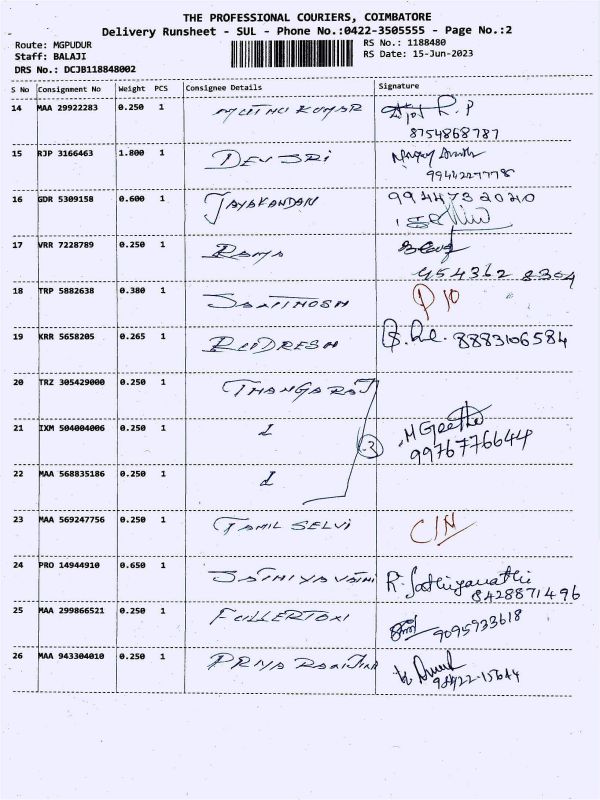 THE PROFESSIONAL COURIERS, COIMBATORE
Delivery Runsheet - SUL - Phone No.:0422-3505555 - Page No.:2
Route: MGPUDUR RS No.: 1188480
Staff: BALAJI RS Date: 15-Jun-2023
DRS No.: DCJB118848002
S No Consignment No Weight PCS Consignee Details Signature
14 MAA 29922283 0.250 1 MUTHU KUMAR R.P
8754868787
15 RJP 3166463 1.800 1 DEVSRI
9944227778
16 GDR 5309158 0.600 1 JAYAKANDAN 9944732020
17 VRR 7228789 0.250 1 RAMA
18 TRP 5882638 0.380 1 SANTHOSH
19 KRR 5658205 0.265 1 RUDRESH 8883106584
20 TRZ 305429000 0.250 1 THANGARAJ
21 IXM 504004006 0.250 1 M Geetha
9976776644
22 MAA 568835186 0.250 1
23 MAA 569247756 0.250 1 TAMIL SELVI C/N
24 PRO 14944910 0.650 1 SATHIYAVATHI R. Sathiyavathi
8428871496
25 MAA 299866521 0.250 1 FULLERTON 9095933618
26 MAA 943304010 0.250 1 PRIYA